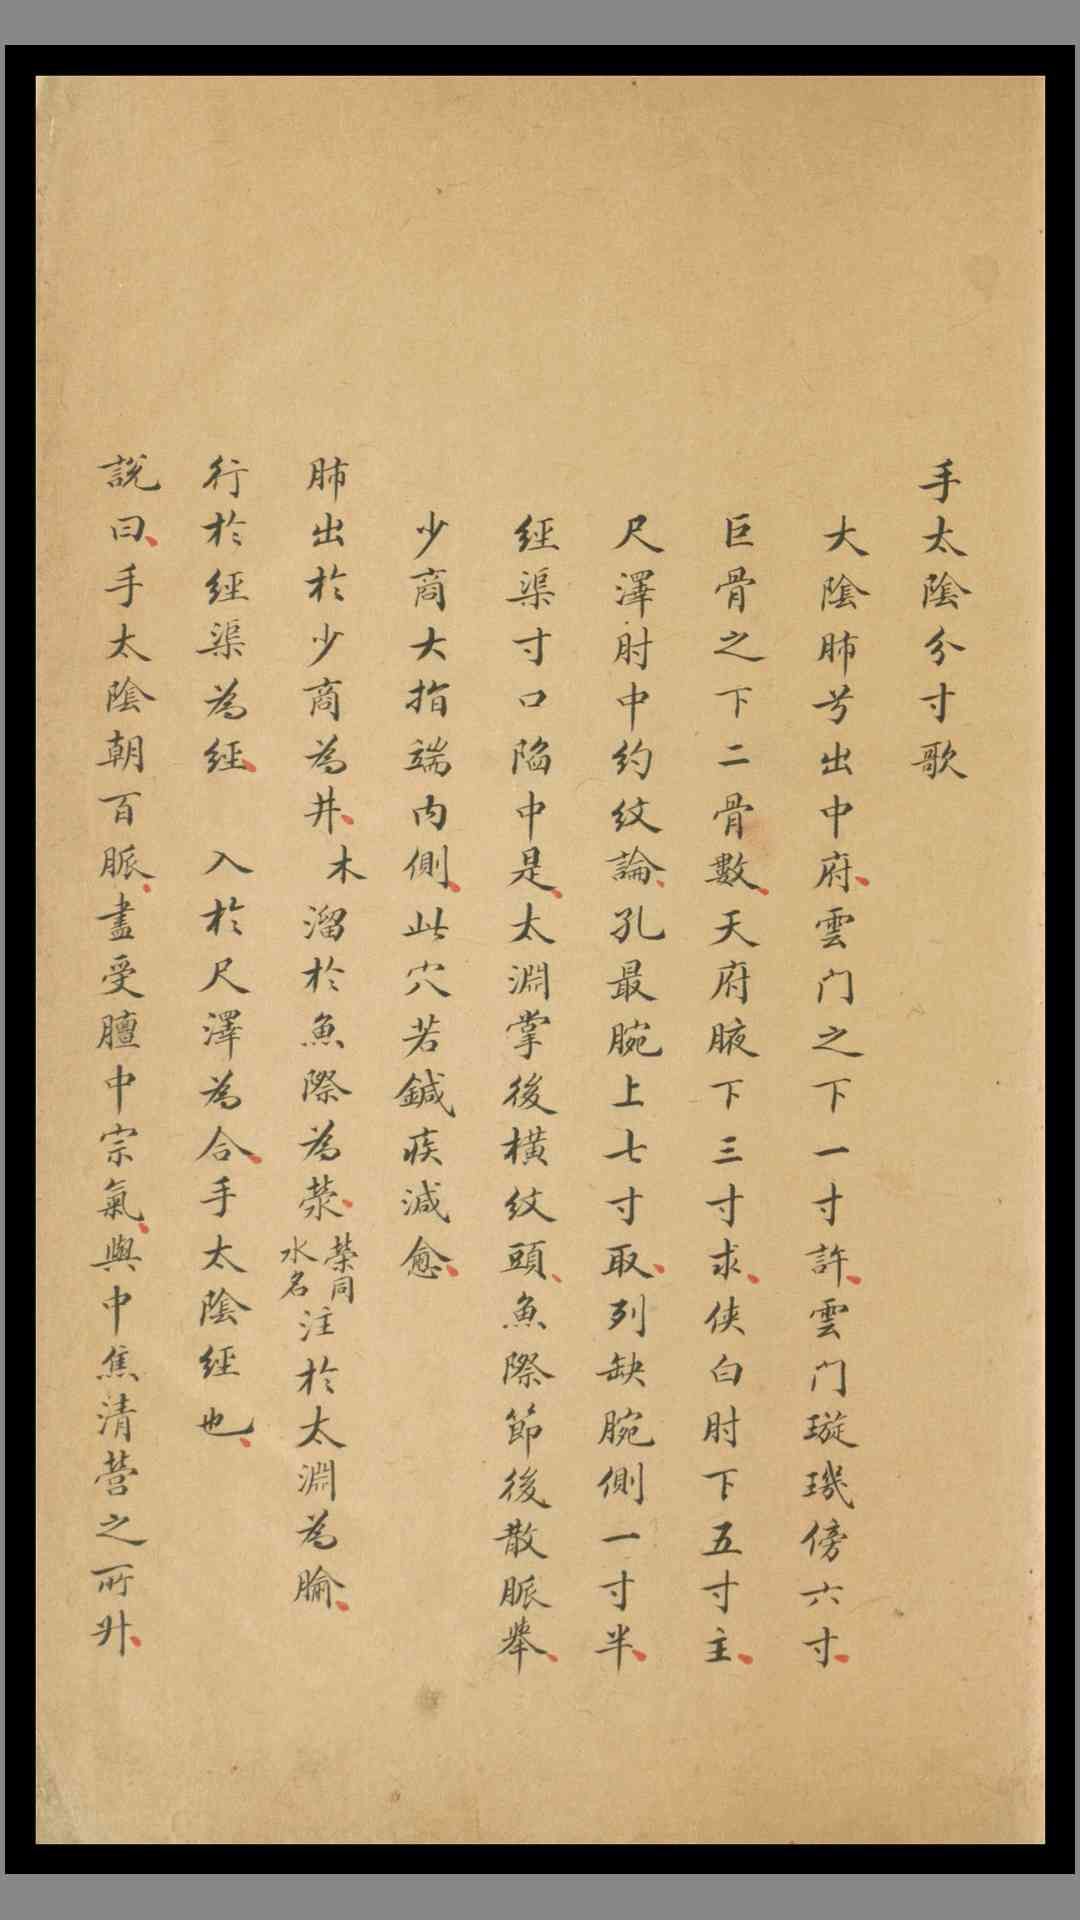 手太陰分寸歌
大陰肺兮出中府雲门之下一寸許雲门璇璣傍六寸
巨骨之下二骨數天府腋下三寸求俠白肘下五寸主
尺澤肘中約紋論孔最腕上七寸取列缺腕側一寸半
經渠寸口陷中是太淵掌後橫紋頭魚際節後散脈舉
少商大指端內側此穴若鍼疾減愈
肺出於少商為井木溜於魚際為滎滎同水名注於太淵為腧
行於經渠為經　入於尺澤為合手太陰經也
說曰手太陰朝百脈盡受膻中宗氣與中焦清營之所升